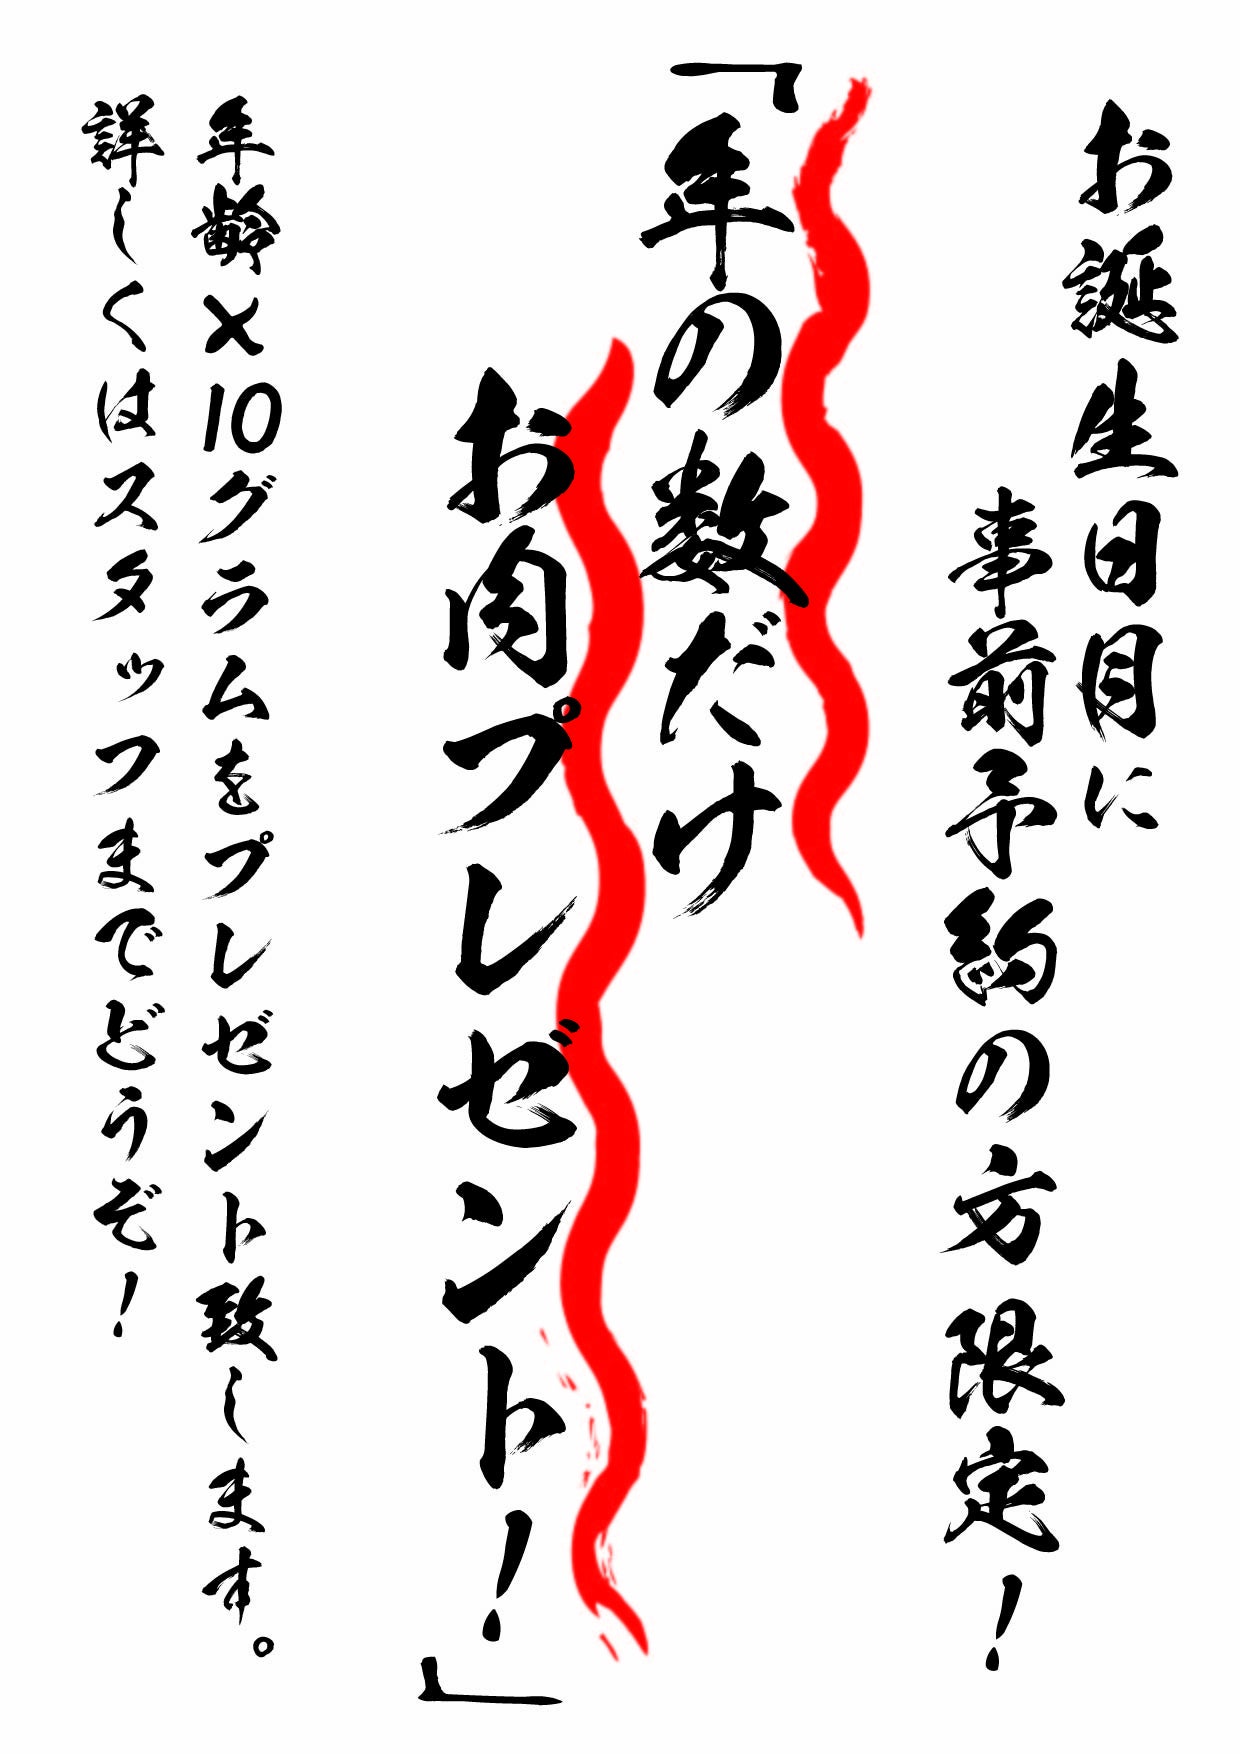 お誕生日目に
事前予約の方限定！
「年の数だけ
お肉プレゼント！」
年齢×10グラムをプレゼント致します。
詳しくはスタッフまでどうぞ！